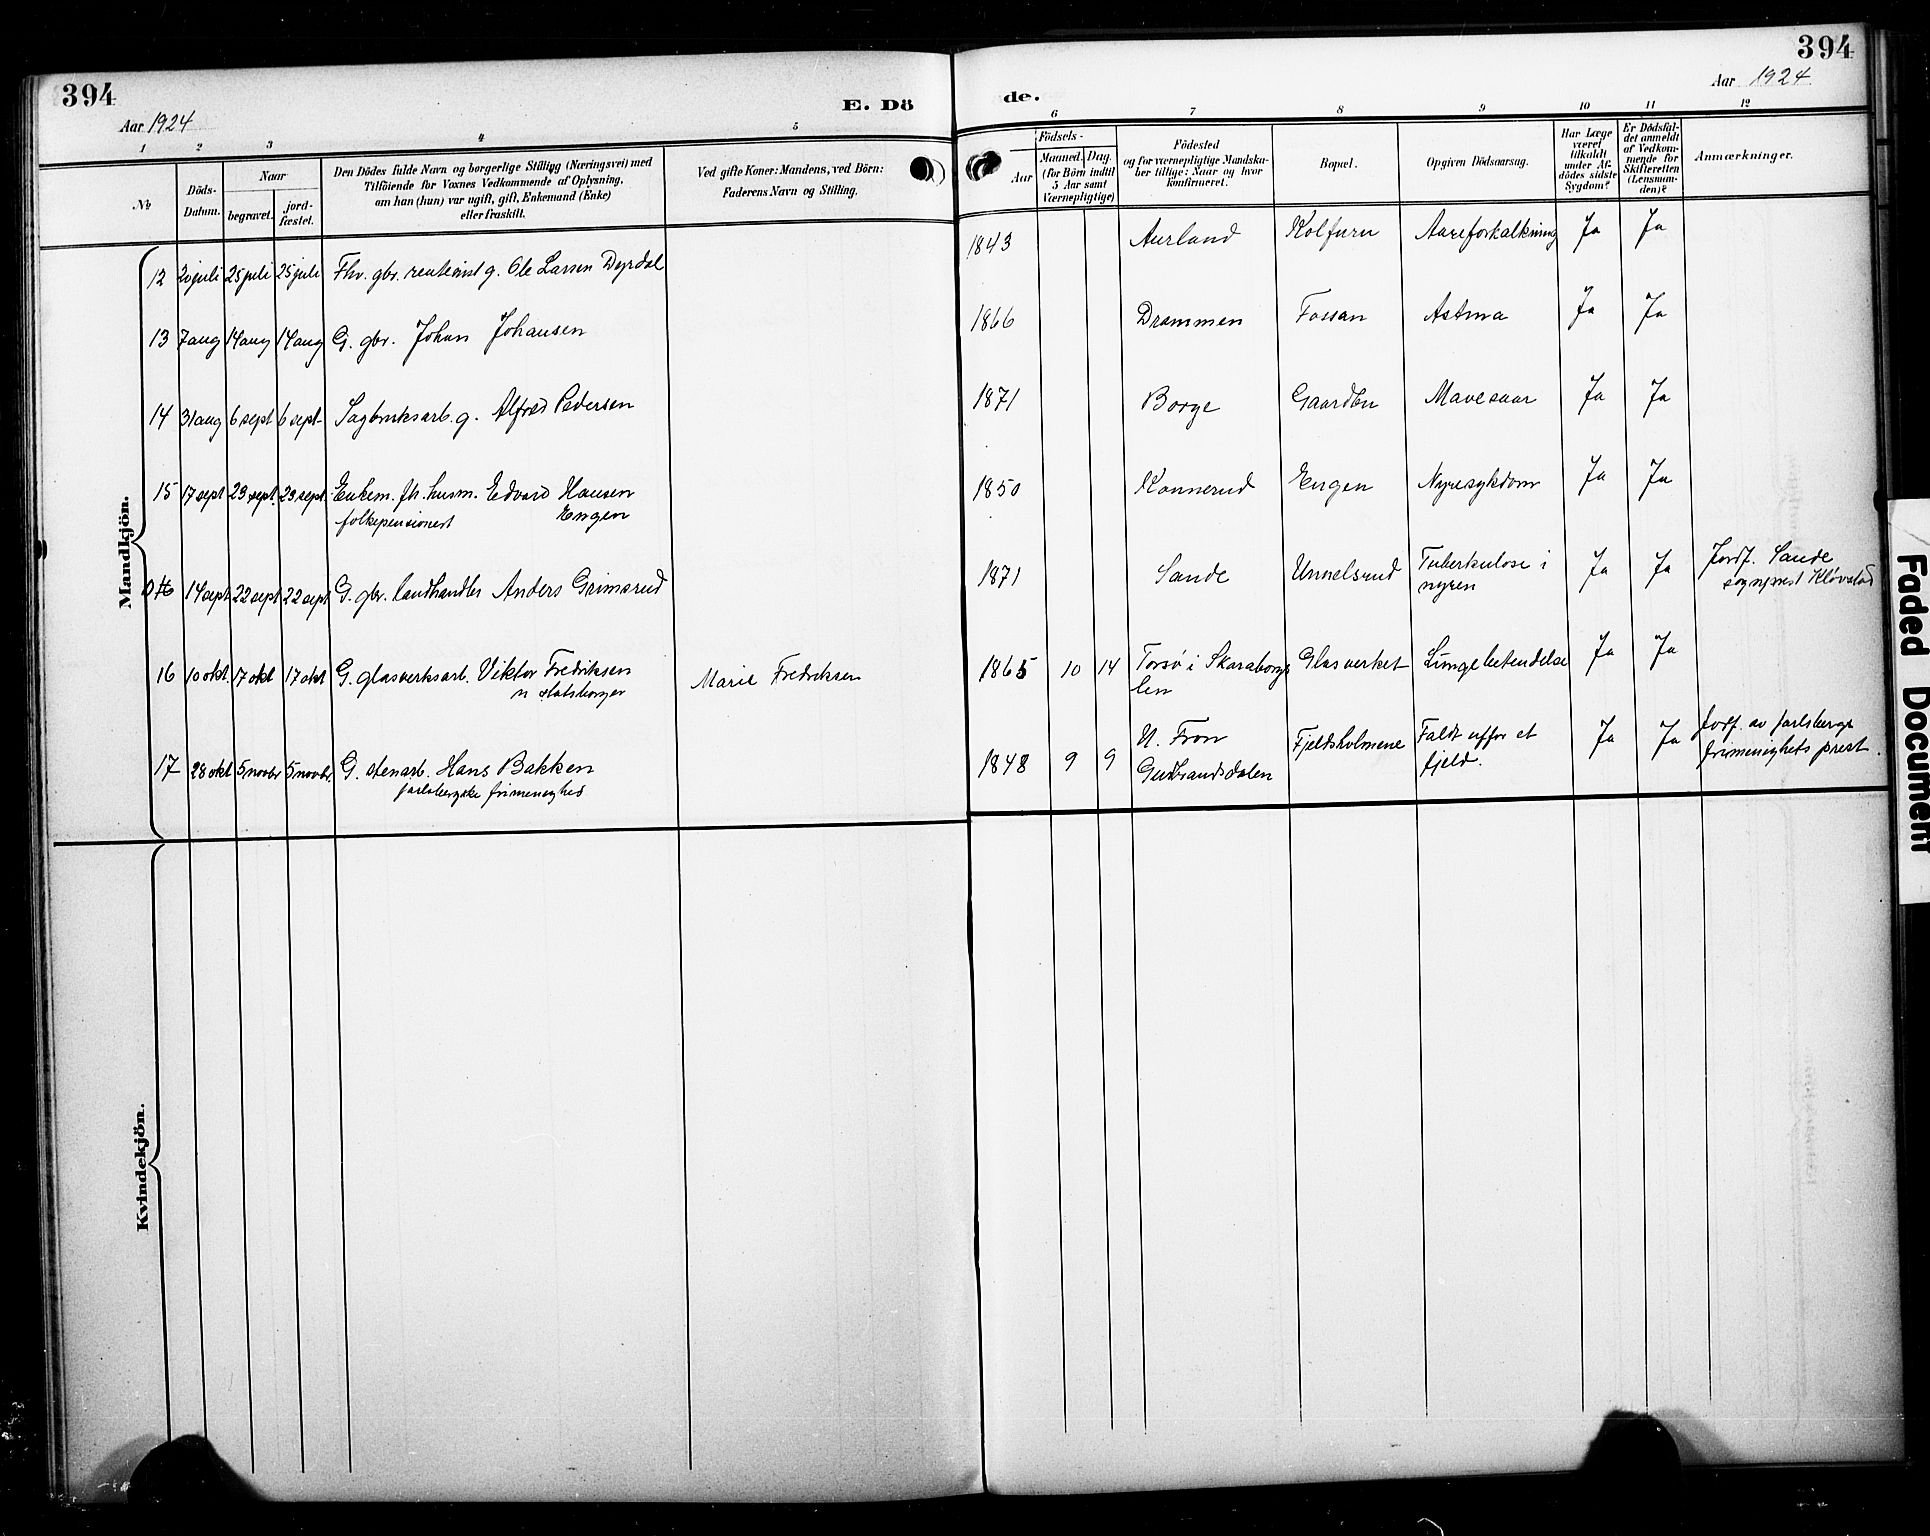 394
394
Aar 1924
E. Dö
de.
Aar 1924
1 2 3 4 5 6 7 8 9 10 11 12
No
Döds-Datum.
Naar
begravet.
jord-fæstet.
Den Dödes fulde Navn og borgerlige Stilligg (Næringsvei) med
Tilföiende for Voxnes Vedkommende af Oplysning,
om han (hun) var ugift, gift, Enkemand (Enke)
eller fraskilt.
Ved gifte Koner: Mandens, ved Börn:
Faderens Navn og Stilling.
Födsels-
Aar
Maaned. Dag.
(for Börn indtil
5 Aar samt
Værnepligtige)
Födested
og for værnepligtige Mandska-
ber tillige: Naar og hvor
konfirmeret.
Bopæl.
Opgiven Dödsaarsag.
Har Læge
været
tilkaldt
under Af-
dödes sidste
Sygdom?
Er Dödsfal-
det anmeldt
af Vedkom-
mende for
Skifteretten
(Lensman-
den)?
Anmærkninger.
Mandkjön.
12 20 juli 25 juli 25 juli Fhv. gbr. rentenist g. Ole Larsen Dyrdal 1843 Aurland Kolfuru Aareforkalkning Ja Ja
13 7 aug 14 aug 14 aug G. gbr. Johan Johansen 1866 Drammen Fossan Astma Ja Ja
14 31 aug 6 sept 6 sept Sagbruksarb. g. Alfred Pedersen 1871 Borge Gaarden Mavesaar Ja Ja
15 17 sept 23 sept. 23 sept. Enkem. fh. husm. Edvard Hansen 1850 Konnerud Engen Nyresykdom Ja Ja
folkepensionert Engen
14 sept 22 sept 22 sept G. gbr. landhandler Anders Grimsrud 1871 Sande Unnelsrud Tuberkulose i Ja Ja Jordf. Sande
nyren sognprest Kløvstad
16 10 okt. 17 okt 17 okt G. glasverksarb. Viktor Fredriksen Marie Fredriksen 1865 10 14 Torsö i Skaraborgs Glasverket Lungebetendelse Ja Ja
n statsborger len
17 28 okt 5 novbr 5 novbr. G. stenarb. Hans Bakken 1848 9 9 N. Fron Fjeldsholmene Faldt utfor et Ja Ja Jordf. av Jarlsbergs
jarlsbergske frimenighed Gudbrandsdalen fjeld. frimenighets prest.
Kvindekjön.
Faded Document